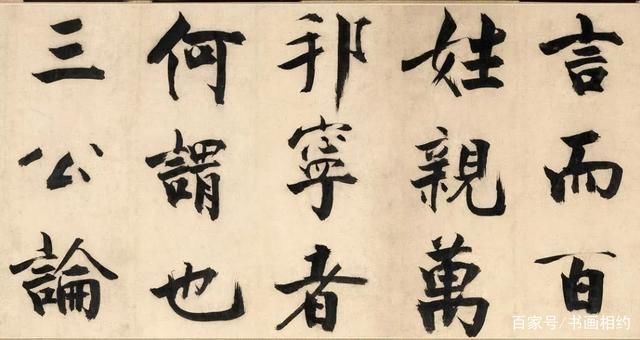 言而百
姓親萬
邦寧者
何謂也
三公論
百家号/书画相约